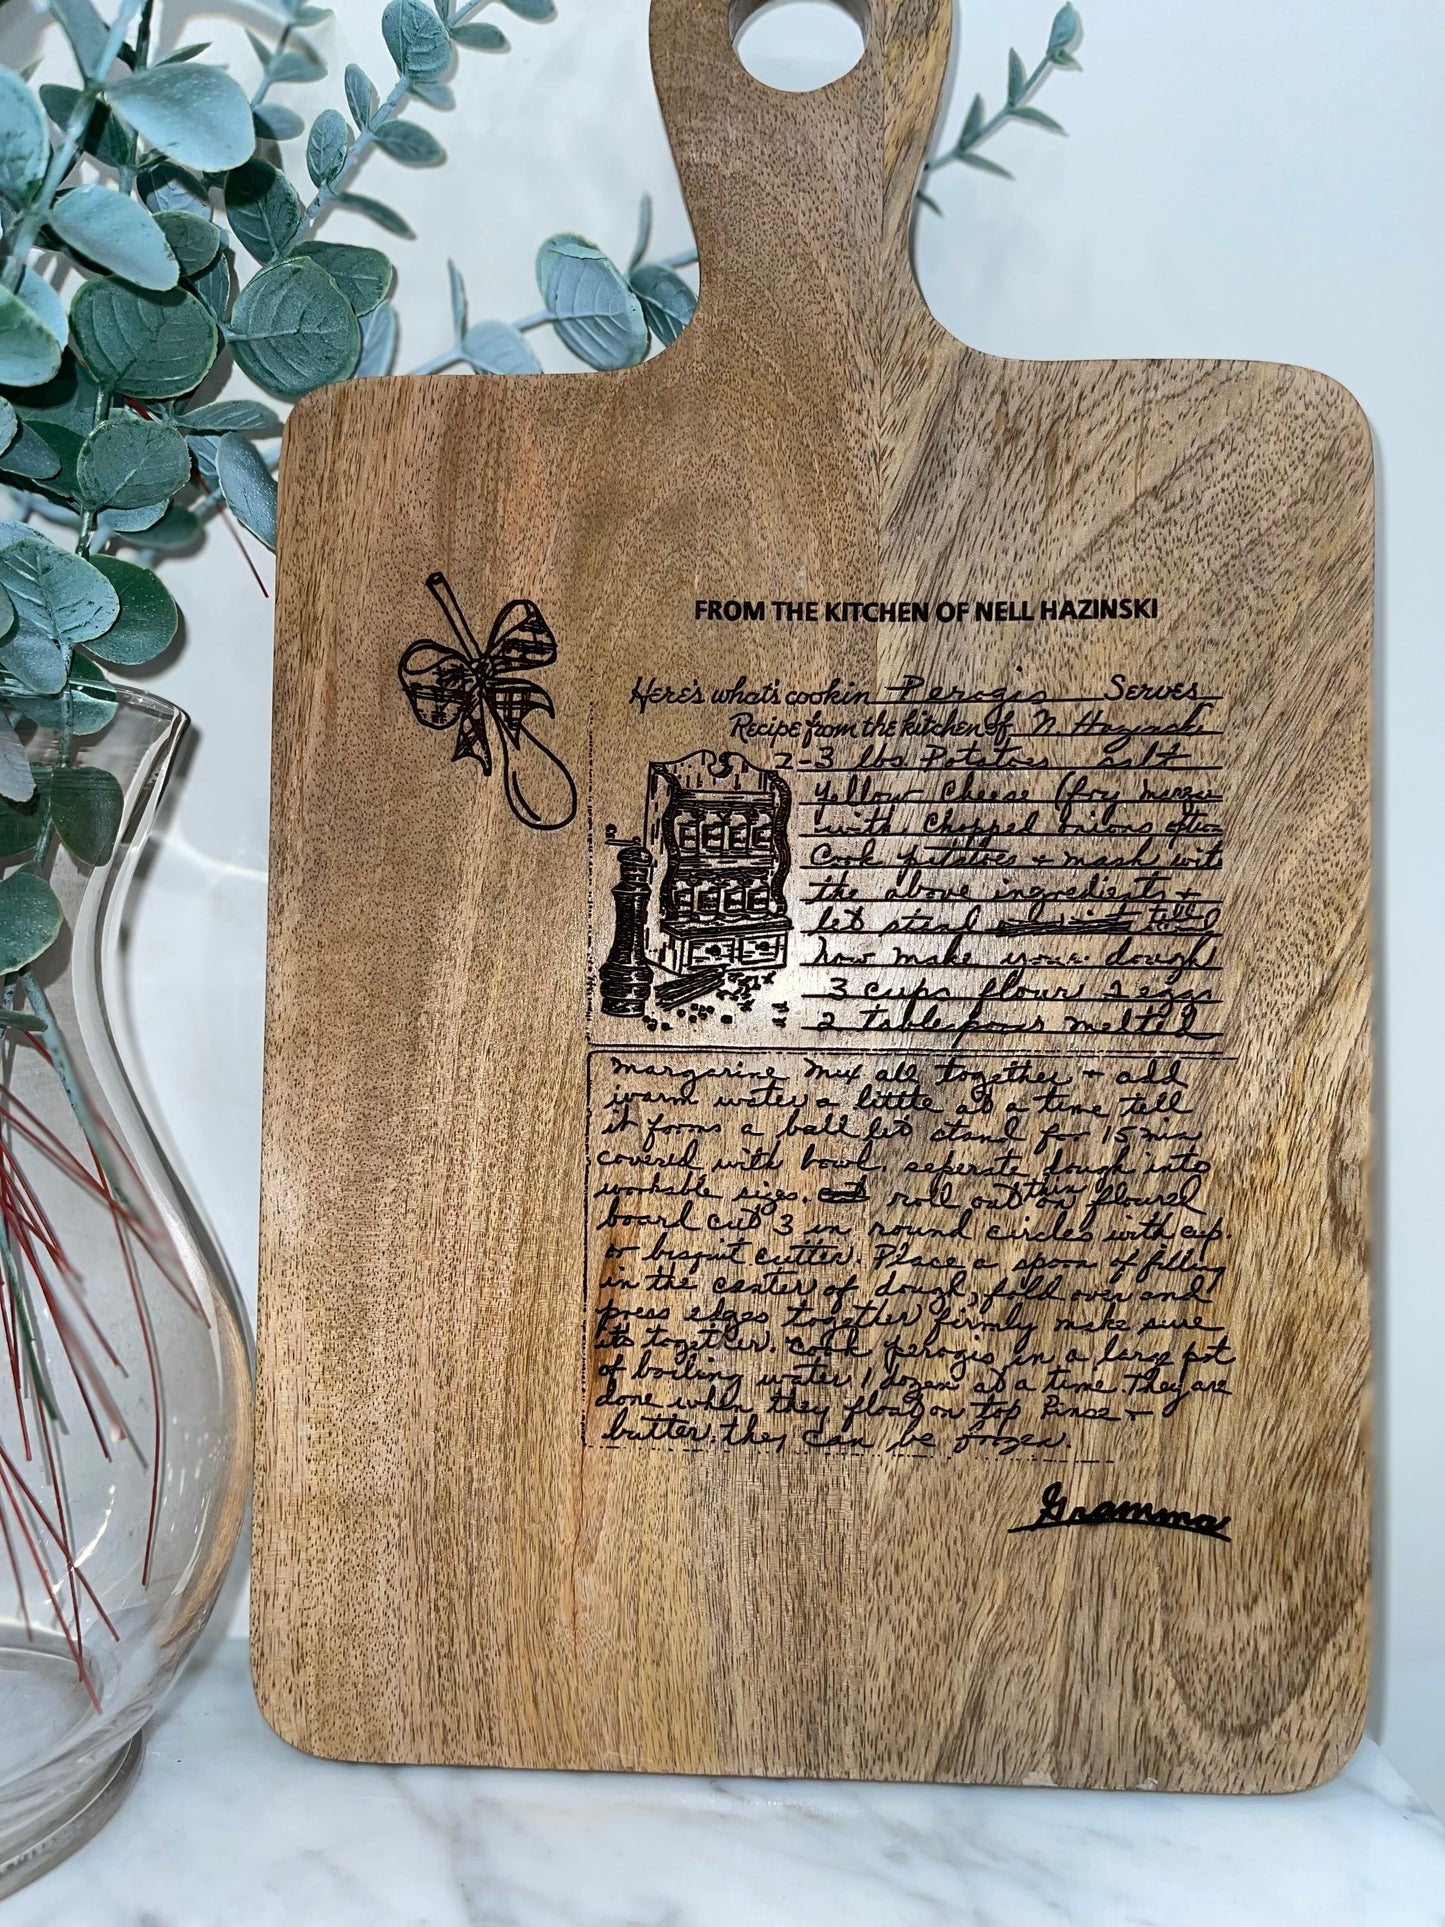 FROM THE KITCHEN OF NELL HAZINSKI
Here's what's cookin Perogis Serves
Recipe from the kitchen of N. Hazinski
2-3 lbs. Potatoes salt
yellow cheese (fry
with chopped onions
Cook potatoes + mash with
the above ingredients +
let stand till
now make your dough
3 cups flour 2 eggs
2 tablespoons melted
margarine Mix all together + add
warm water a little at a time till
it forms a ball let stand for 15 min
covered with bowl. seperate dough into
workable sizes. roll out thin on floured
board cut 3 in round circles with cup.
or bisquit cutter. Place a spoon of filling
in the center of dough, fold over and
press edges together firmly make sure
its together. Cook perogis in a large pot
of boiling water 1 dozen at a time. They are
done when they float on top Rinse +
butter. they can be frozen.
Gramma